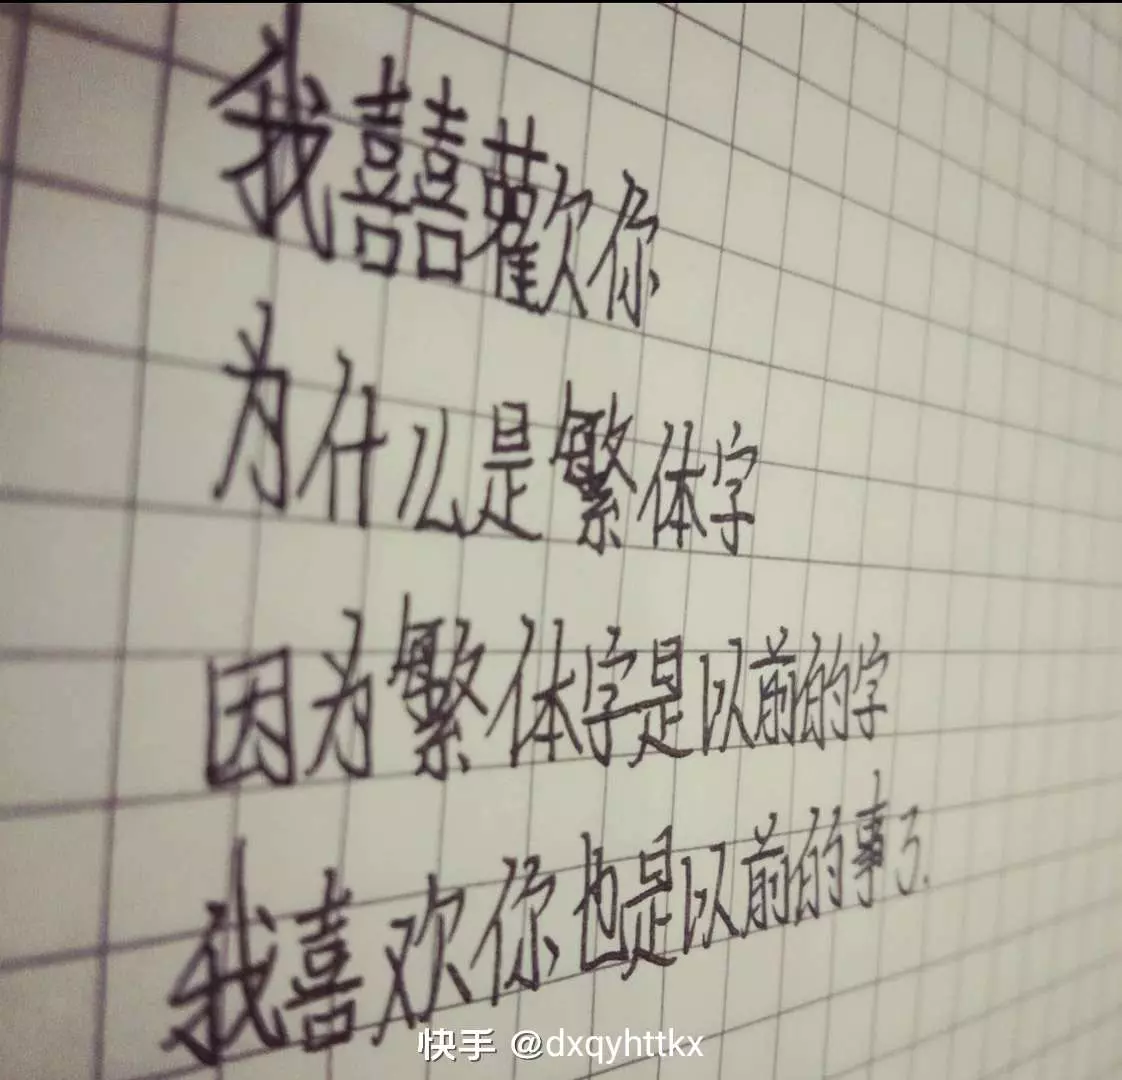 我囍歡你
为什么是繁体字
因为繁体字是以前的字
我喜欢你也是以前的事了.
快手 @dxqyhttkx